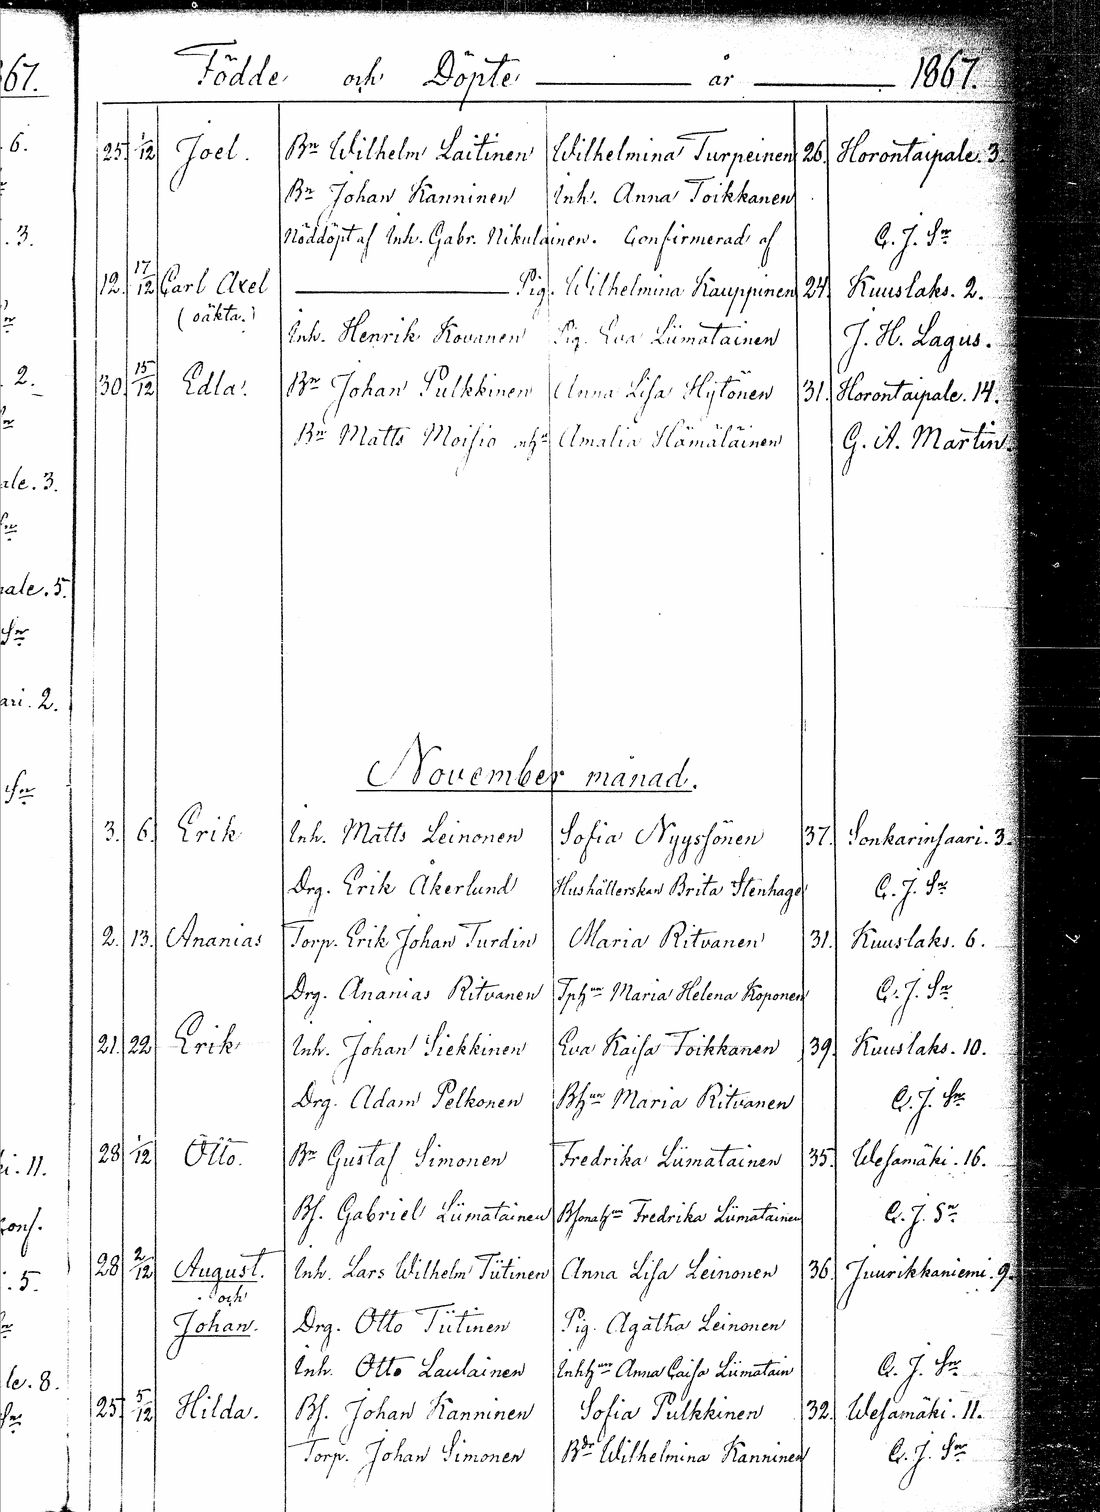 67.
Födde och Döpte år 1867.
6.
25. 1/12 Joel. Bn Wilhelm Laitinen Wilhelmina Turpeinen 26. Horontaipale. 3.
Bn Johan Kanninen Inh. Anna Toikkanen
3. Nöddöpt af Inh. Gabr. Nikulainen. Confirmerad af C. J. Sn
12. 17/12 Carl Axel Pig. Wilhelmina Kauppinen 24. Kuuslaks. 2.
(oäkta.)
Inh. Henrik Kovanen Pig. Eva Liimatainen J. H. Lagus.
2. 30. 15/12 Edla. Bn Johan Pulkkinen Anna Lisa Hytönen 31. Horontaipale. 14.
Bn Matts Moisio Amalia Hämäläinen G. A. Martin.
ale. 3.
ale. 5.
ari. 2.
November månad.
3. 6. Erik Inh. Matts Leinonen Sofia Nyyssönen 37. Sonkarinsaari. 3.
Drg. Erik Åkerlund Hushållerskan Brita Stenhage C. J. Sn
2. 13. Ananias Torp. Erik Johan Turdin Maria Ritvanen 31. Kuuslaks. 6.
Drg. Ananias Ritvanen Tphun Maria Helena Koponen C. J. Sn
21. 22 Erik Inh. Johan Siekkinen Eva Kaisa Toikkanen 39. Kuuslaks. 10.
Drg. Adam Pelkonen Bhun Maria Ritvanen C. J. Sn
i. 11. 28 1/12 Otto. Bn Gustaf Simonen Fredrika Liimatainen 35. Wesamäki. 16.
Conf. Bs. Gabriel Liimatainen Bsonahun Fredrika Liimatainen C. J. Sn
i. 5. 28 2/12 August. Inh. Lars Wilhelm Tiitinen Anna Lisa Leinonen 36. Juurikkaniemi. 9.
och
Johan. Drg. Otto Tiitinen Pig. Agatha Leinonen
le. 8. Inh. Otto Laulainen Inhhun Anna Caisa Liimatain C. J. Sn
25. 5/12 Hilda. Bs. Johan Kanninen Sofia Pulkkinen 32. Wesamäki. 11.
Torp. Johan Simonen Bdr Wilhelmina Kanninen C. J. Sn